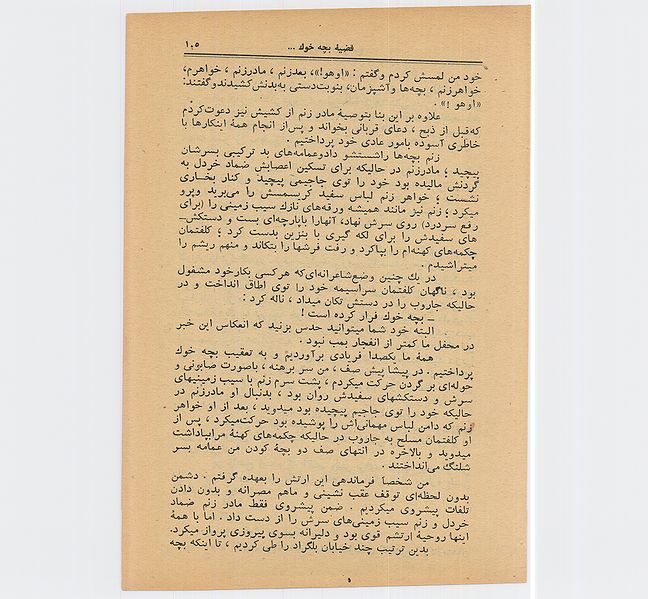 قضیه بچه خوك ...
۱۰۵
خود من لمسش کردم وگفتم : «اوهو!»، بعدزنم ، مادرزنم ، خواهرم،
خواهرزنم ، بچه‌ها وآشپزمان، بنوبت‌دستی به‌بدنش‌کشیدندوگفتند:
«اوهو !» .
علاوه بر این بنا بتوصیهٔ مادر زنم از کشیش نیز دعوت‌کردم
که‌قبل از ذبح ، دعای قربانی بخواند و پس‌از انجام همهٔ اینکارها با
خاطری آسوده بامور عادی خود پرداختیم .
زنم بچه‌ها راشستشو دادوعمامه‌های بد ترکیبی بسرشان
پیچید ؛ مادرزنم در حالیکه برای تسکین اعصابش ضماد خردل به
گردنش مالیده بود خود را توی جاجیمی پیچید و کنار بخاری
نشست ؛ خواهر زنم لباس سفید کریسمسش را می‌برید وپرو
میکرد ؛ زنم نیز مانند همیشه ورقه‌های نازك سیب زمینی را (برای
رفع سردرد) روی سرش نهاد، آنهارا باپارچه‌ای بست و دستکش‌ـ
های سفیدش را برای لکه گیری با بنزین بدست کرد ؛ کلفتمان
چکمه‌های کهنه‌ام را بپاکرد و رفت فرشها را بتکاند و منهم ریشم را
میتراشیدم .
در یك چنین وضع‌شاعرانه‌ای‌که هرکسی بکارخود مشغول
بود ، ناگهان کلفتمان سراسیمه خود را توی اطاق انداخت و در
حالیکه جاروب را در دستش تکان میداد ، ناله کرد :
ـ بچه خوك فرار کرده است !
البته خود شما میتوانید حدس بزنید که انعکاس این خبر
در محفل ما کمتر از انفجار بمب نبود .
همهٔ ما یکصدا فریادی برآوردیم و به تعقیب بچه خوك
پرداختیم . در پیشا پیش صف ، من سر برهنه ، باصورت صابونی و
حوله‌ای بر گردن حرکت میکردم ، پشت سرم زنم با سیب زمینیهای
سرش و دستکشهای سفیدش روان بود ، بدنبال او مادرزنم در
حالیکه خود را توی جاجیم پیچیده بود میدوید ، بعد از او خواهر
زنم که دامن لباس مهمانی‌اش را پوشیده بود حرکت‌میکرد ، پس از
او کلفتمان مسلح به جاروب در حالیکه چکمه‌های کهنهٔ مرابپاداشت
میدوید و بالاخره در انتهای صف دو بچهٔ کودن من عمامه بسر
شلنگ می‌انداختند .
من شخصا فرماندهی این ارتش را بعهده گرفتم . دشمن
بدون لحظه‌ای توقف عقب نشینی و ماهم مصرانه و بدون دادن
تلفات پیشروی میکردیم . ضمن پیشروی فقط مادر زنم ضماد
خردل و زنم سیب زمینی‌های سرش را از دست داد . اما با همهٔ
اینها روحیهٔ ارتشم قوی بود و دلیرانه بسوی پیروزی پرواز میکرد.
بدین ترتیب چند خیابان بلگراد را طی کردیم ، تا اینکه بچه